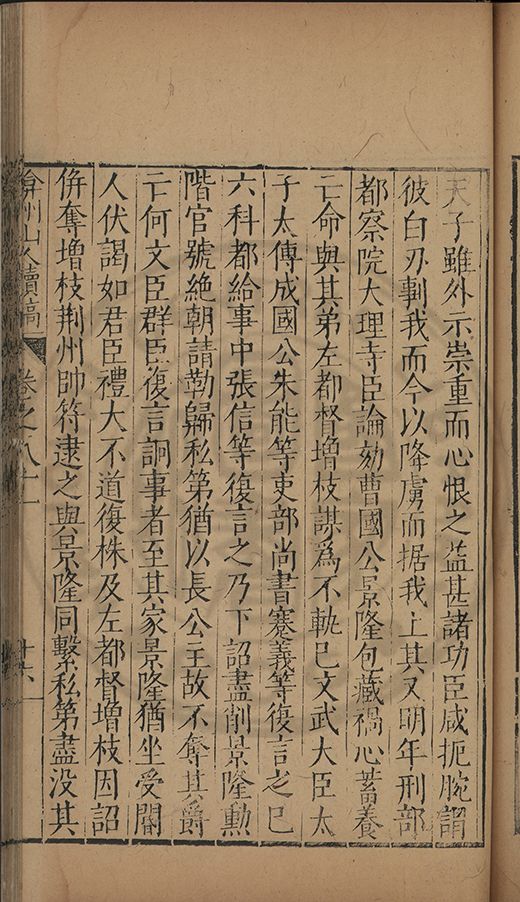 天子雖外示崇重而心恨之益甚諸功臣咸扼腕謂
彼白刃剚我而今以降虜而据我上其又明年刑部
都察院大理寺臣論劾曹國公景隆包藏禍心蓄養
亡命與其弟左都督增枝謀爲不軌已文武大臣太
子太傅成國公朱能等吏部尚書蹇義等復言之已
六科都給事中張信等復言之乃下詔盡削景隆勳
階官號絶朝請勒歸私第猶以長公主故不奪其爵
亡何文臣群臣復言詗事者至其家景隆猶坐受閽
人伏謁如君臣禮大不道復株及左都督增枝因詔
併奪增枝荆州帥符逮之與景隆同繫私第盡没其
弇州山人續稿
卷之八十一
十六